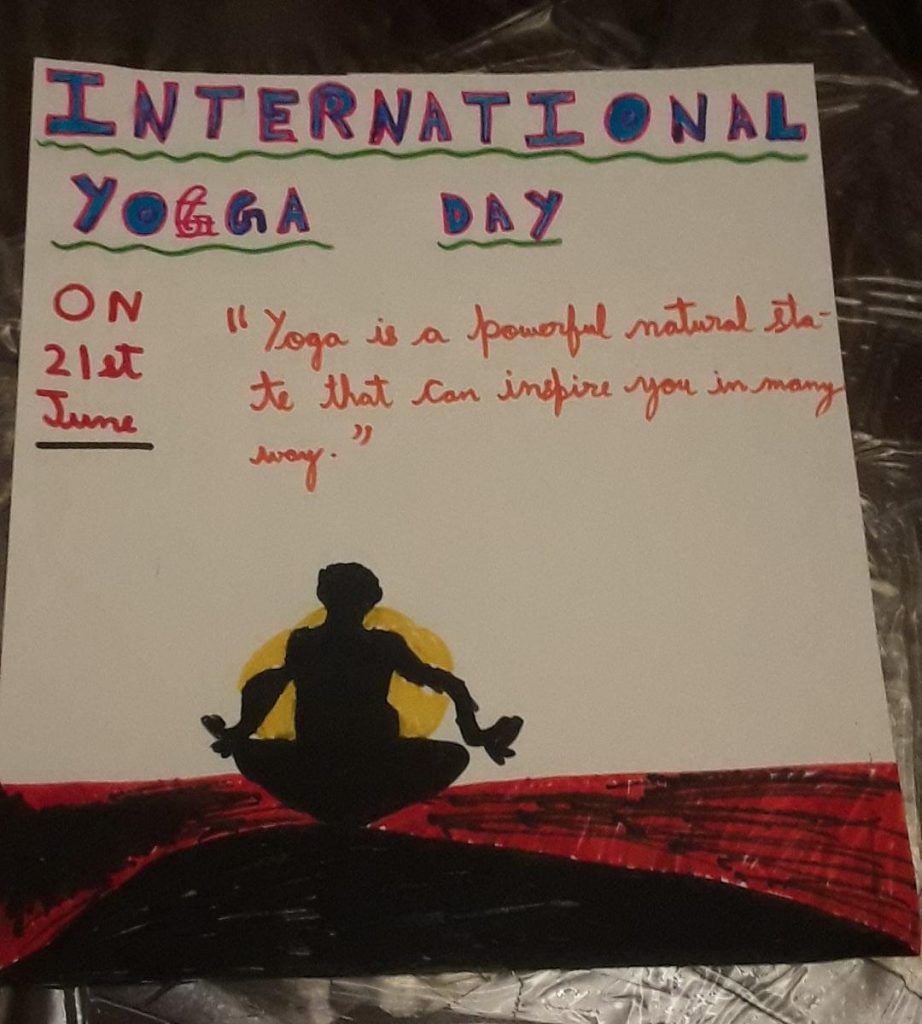 INTERNATIONAL
YOGA DAY
ON
21st
June
"Yoga is a powerful natural sta-
te that can inspire you in many
way."